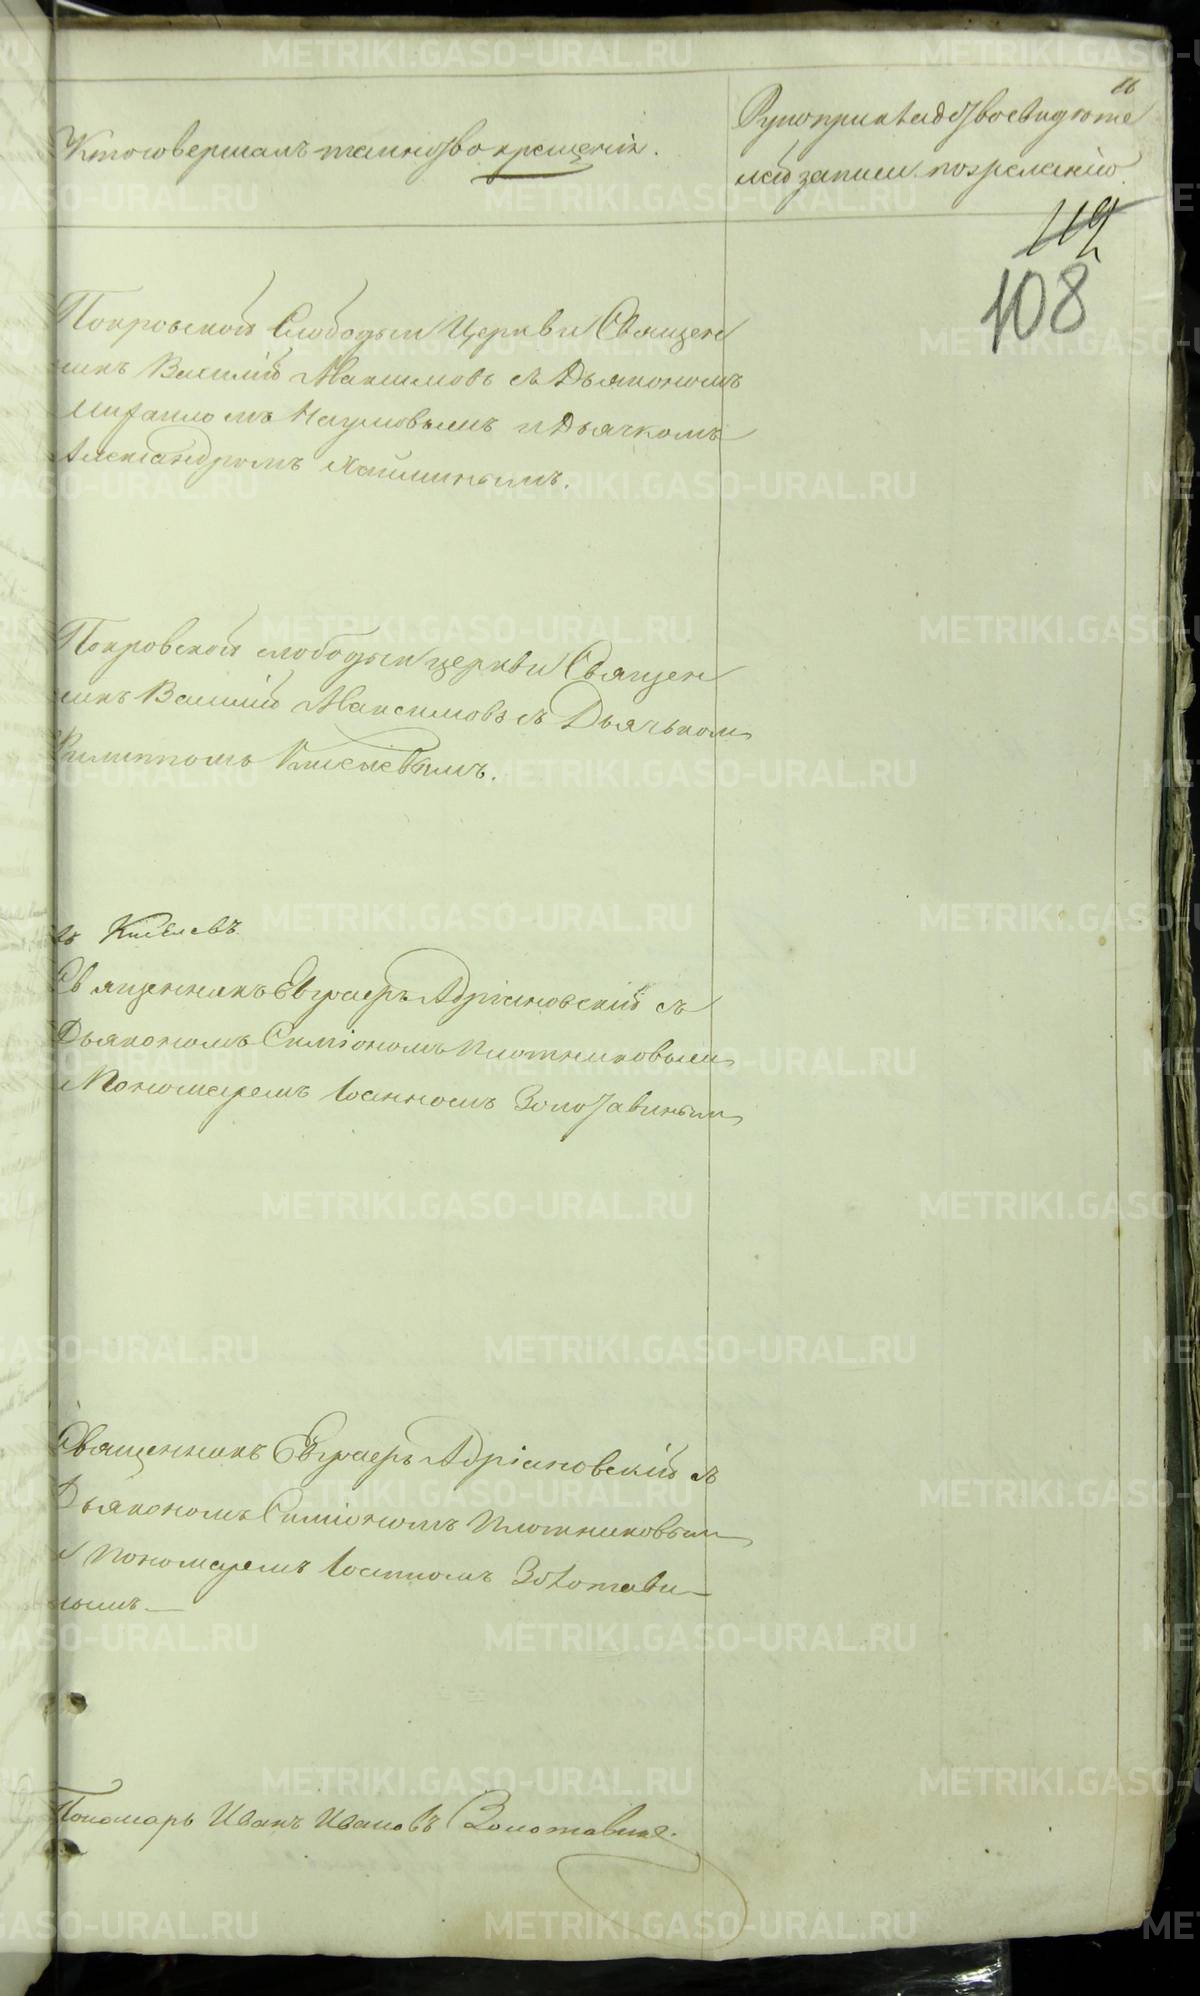 Кто совершалъ таинство крещенія.
Рукоприкладство свидѣте
лей записи по желанію.
112
108
Покровской Слободы Церкви Священ
никъ Василій Максимовъ съ Дьякономъ
Михаиломъ Наумовымъ и Дьячкомъ
Александромъ
Покровской слободы церкви Священ
никъ Василій Максимовъ съ Дьячьком
Филиппомъ Киселевымъ.
Киселевъ
Священникъ Евграфъ Адріановскій съ
Дьякономъ Симіономъ Плотниковым
и Пономаремъ Іоанномъ Золотавиным
Священникъ Евграфъ Адріановскій съ
Дьякономъ Симіономъ Плотниковым
и Пономаремъ Іоанномъ Золотави–
нымъ —
Пономарь Иванъ Ивановъ Золотавинъ.
METRIKI.GASO-URAL.RU